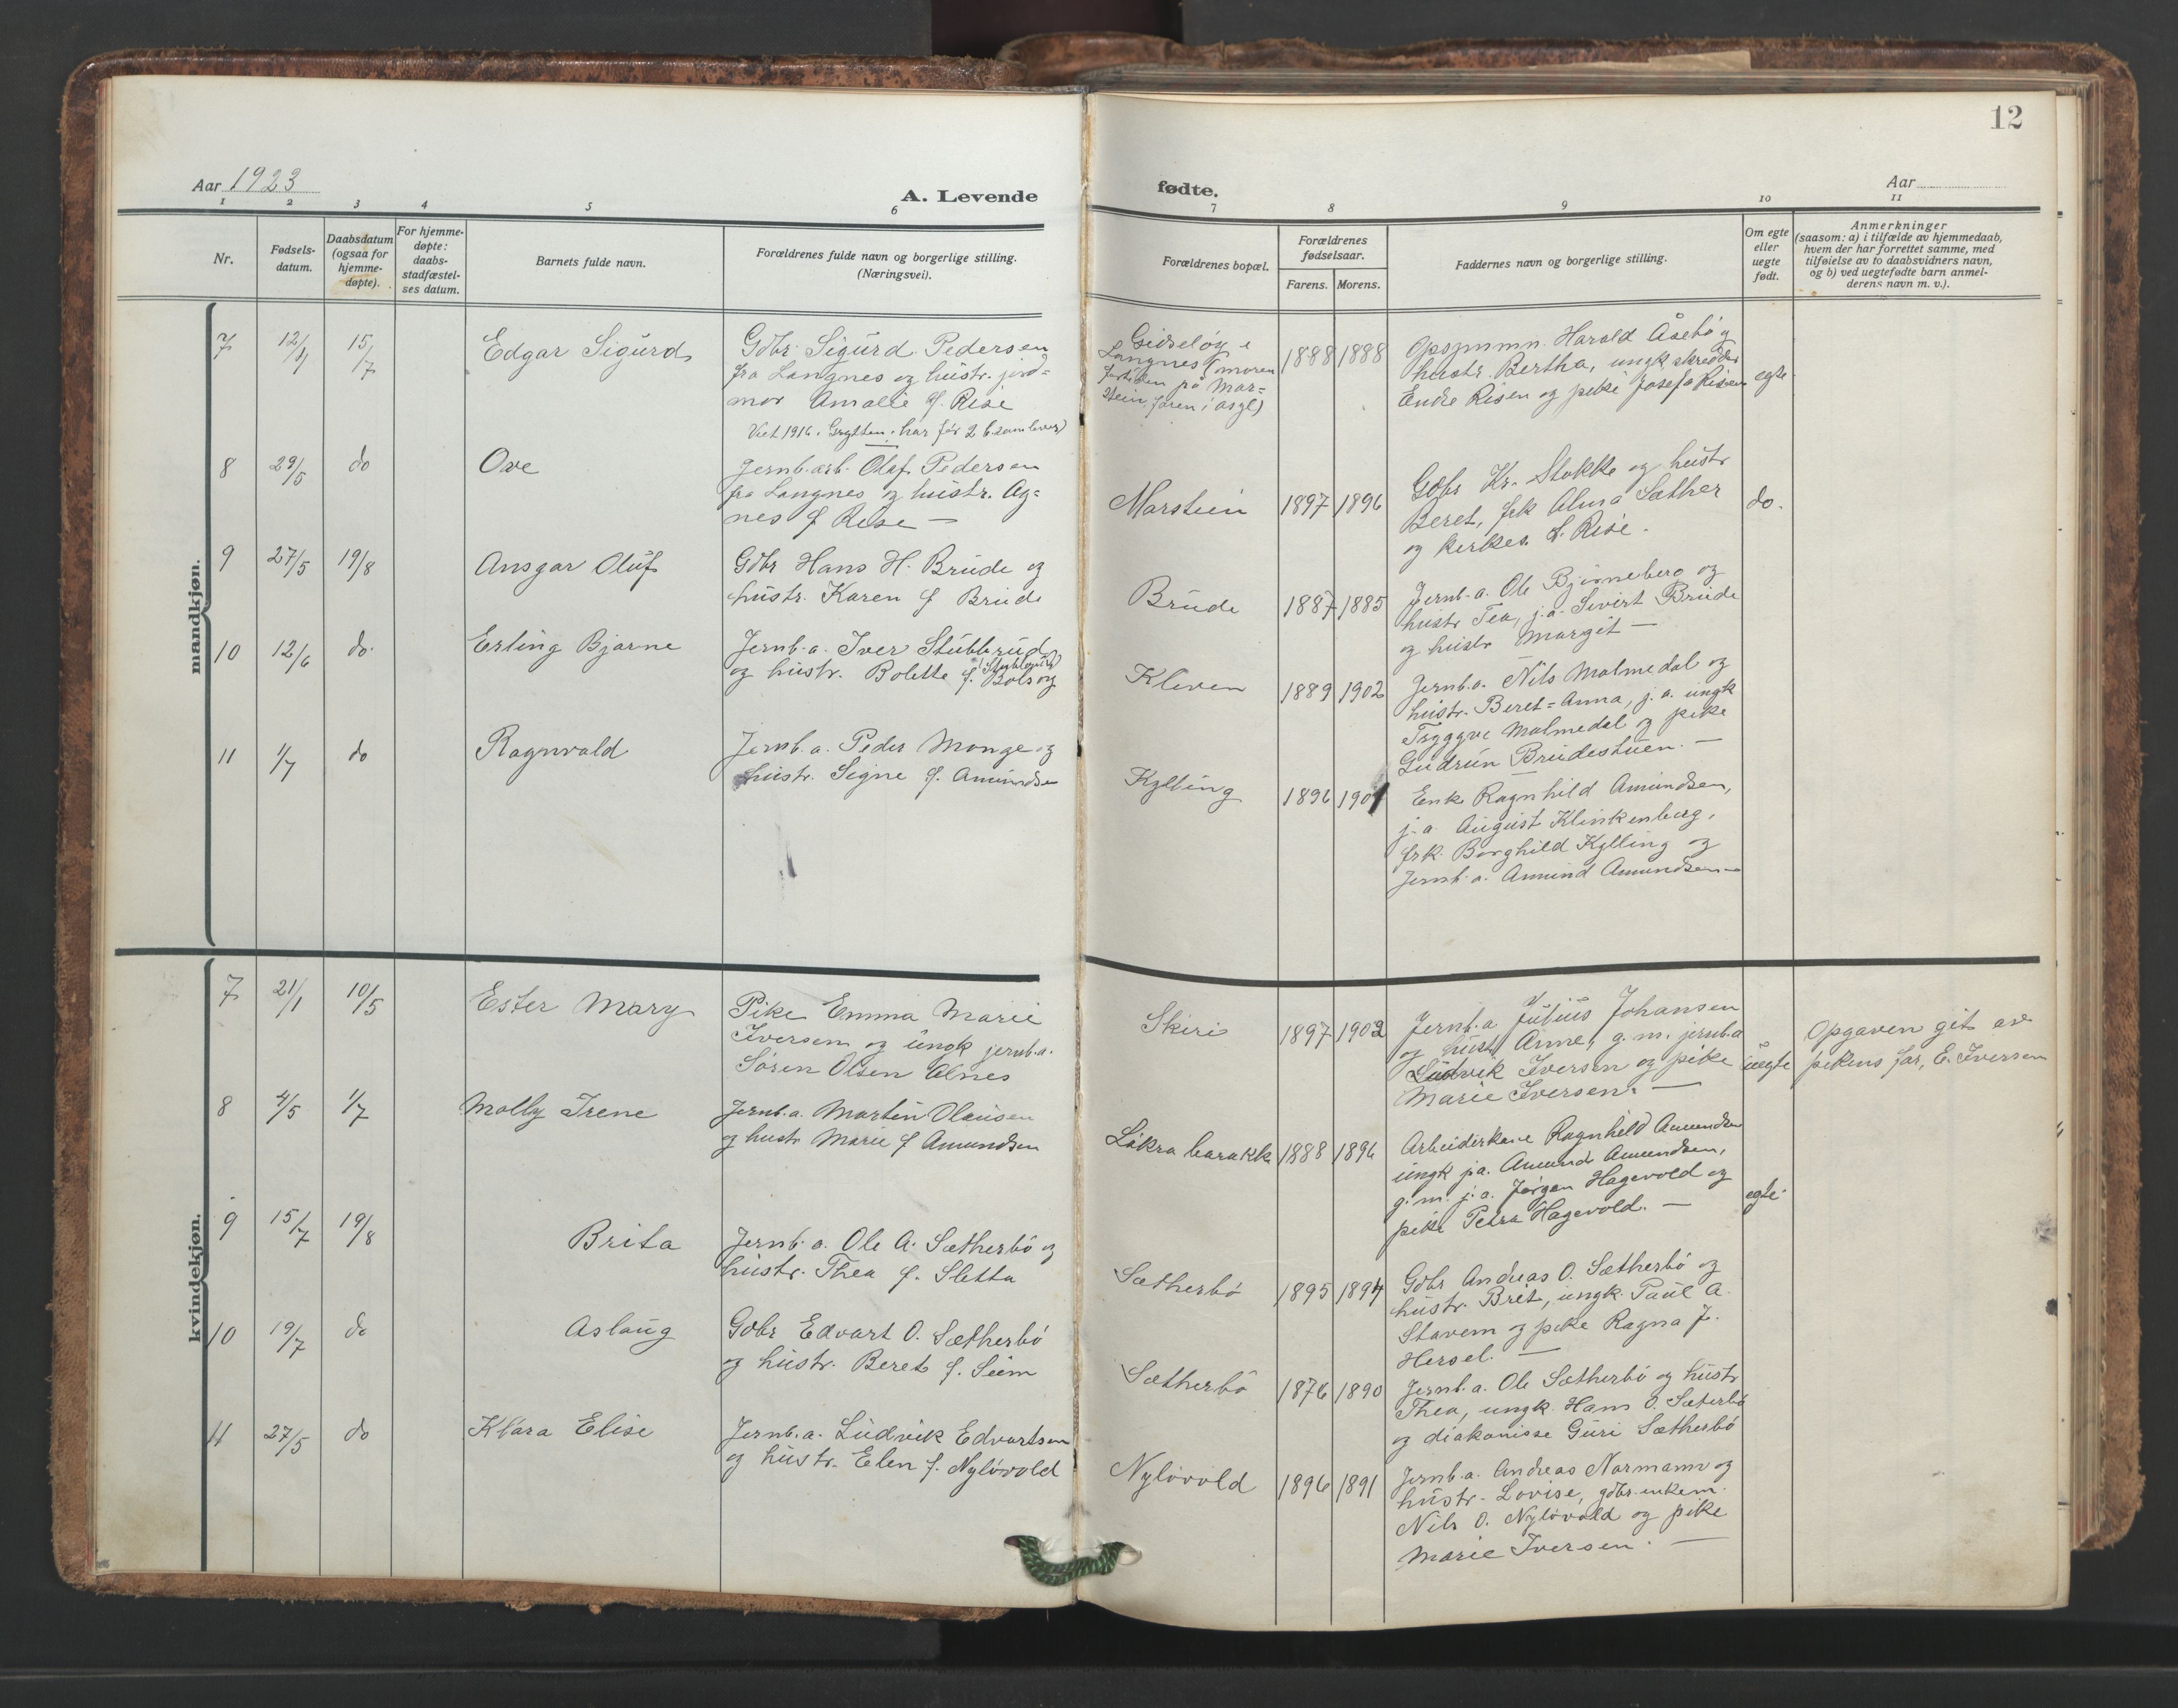 12
Aar 1923
A. Levende
fødte.
Aar
1 2 3 4 5 6
7 8 9 10 11
Nr.
Fødsels-
datum.
Daabsdatum
(ogsaa for
hjemme-
døpte).
For hjemme-
døpte:
daabs-
stadfæstel-
ses datum.
Barnets fulde navn.
Forældrenes fulde navn og borgerlige stilling.
(Næringsvei).
Forældrenes bopæl.
Forældrenes
fødselsaar.
Farens. Morens.
Faddernes navn og borgerlige stilling.
Om egte
eller
uegte
født.
Anmerkninger
(saasom: a) i tilfælde av hjemmedaab,
hvem der har forrettet samme, med
tilføielse av to daabsvidners navn,
og b) ved uegtefødte barn anmel-
derens navn m. v.).
mandkjøn.
7 12/4 15/7 Edgar Sigurd
Gdbr. Sigurd Pedersen
fra Langnes og hustr. jord=
mor Amalie f. Rise
Viet 1916 i Grytten, har før 2 b. sammen
Langnes (moren
for tiden på Mar=
stein, faren i
1888 1888
Opsynmn. Harald Åsebø og
hustr. Bertha, ungk. skredder
Endre Risen og pike Josefa Risen
egte
8 29/5 do Ove
Jernb. arb. Olaf Pedersen
fra Langnes og hustr. Ag=
nes f Rise —
Marstein 1897 1896
Gdbr Kr. Stokke og hustr
Beret, frk Alma Sæther
og kirkes. L. Rise.
do.
9 27/5 19/8 Ansgar Oluf
Gdbr Hans H. Brude og
hustr. Karen f Brude
Brude 1887 1885
Jernb. a. Ole Bjørneberg og
hustr Tea, j. a. Sivert Brude
og hustr Margit —
10 12/6 do. Erling Bjarne
Jernb. a. Iver Stubbrud
og hustr. Bolette f. Bolsøy
Kleven 1889 1902
Jernb. a. Nils Malmedal og
hustr. Beret=Anna, j. a. ungk
Tryggve Malmedal og pike
Gudrun Brudestuen. —
11 1/7 do Ragnvald
Jernb. a. Peder Monge og
hustr. Signe f. Amundsen
Kylling 1896 1901
Enke Ragnhild Amundsen,
j. a. August Klinkenberg,
frk. Borghild Kylling og
Jernb. a. Amund Amundsen —
kvindekjøn.
7 21/1 10/5 Ester Mary
Pike Emma Marie
Iversen og ungk jernb. a.
Søren Olsen Alnes
Skiri 1897 1902
Jernb. a Julius Johansen
og hustr Anne, g. m. jernb. a
Ludvik Iversen og pike
Marie Iversen. —
uegte
Opgaven git av
pikens far, E. Iversen
8 4/5 1/7 Molly Irene
Jernb. a. Martin Olausen
og hustr Marie f Amundsen
Låkra barakk 1888 1896
Arbeiderkone Ragnhild Amundsen
ungk j. a. Amund Amundsen,
g. m. j. a. Jørgen Hagevold og
pike Petra Hagevold. —
egte
9 15/7 19/8 Brita
Jernb. a. Ole A. Sætherbø og
hustr. Thea f. Sletta
Sætherbø 1895 1894
Gdbr Andreas O. Sætherbø og
hustr. Brit, ungk. Paul A.
Stavem og pike Ragna J.
Hersel. —
10 19/7 do Aslaug
Gdbr Edvart O. Sætherbø
og hustr. Beret f. Seim
Sætherbø 1876 1890
Jernb. a. Ole Sætherbø og hustr
Thea, ungk. Hans O. Sæterbø
og diakonisse Guri Sætherbø
11 27/5 do Klara Elise
Jernb. a. Ludvik Edvartsen
og hustr. Elen f. Nyløvold
Nyløvold 1896 1891
Jernb. a. Andreas Normann og
hustr. Lovise, gdbr. enkem.
Nils O. Nyløvold og pike
Marie Iversen. —